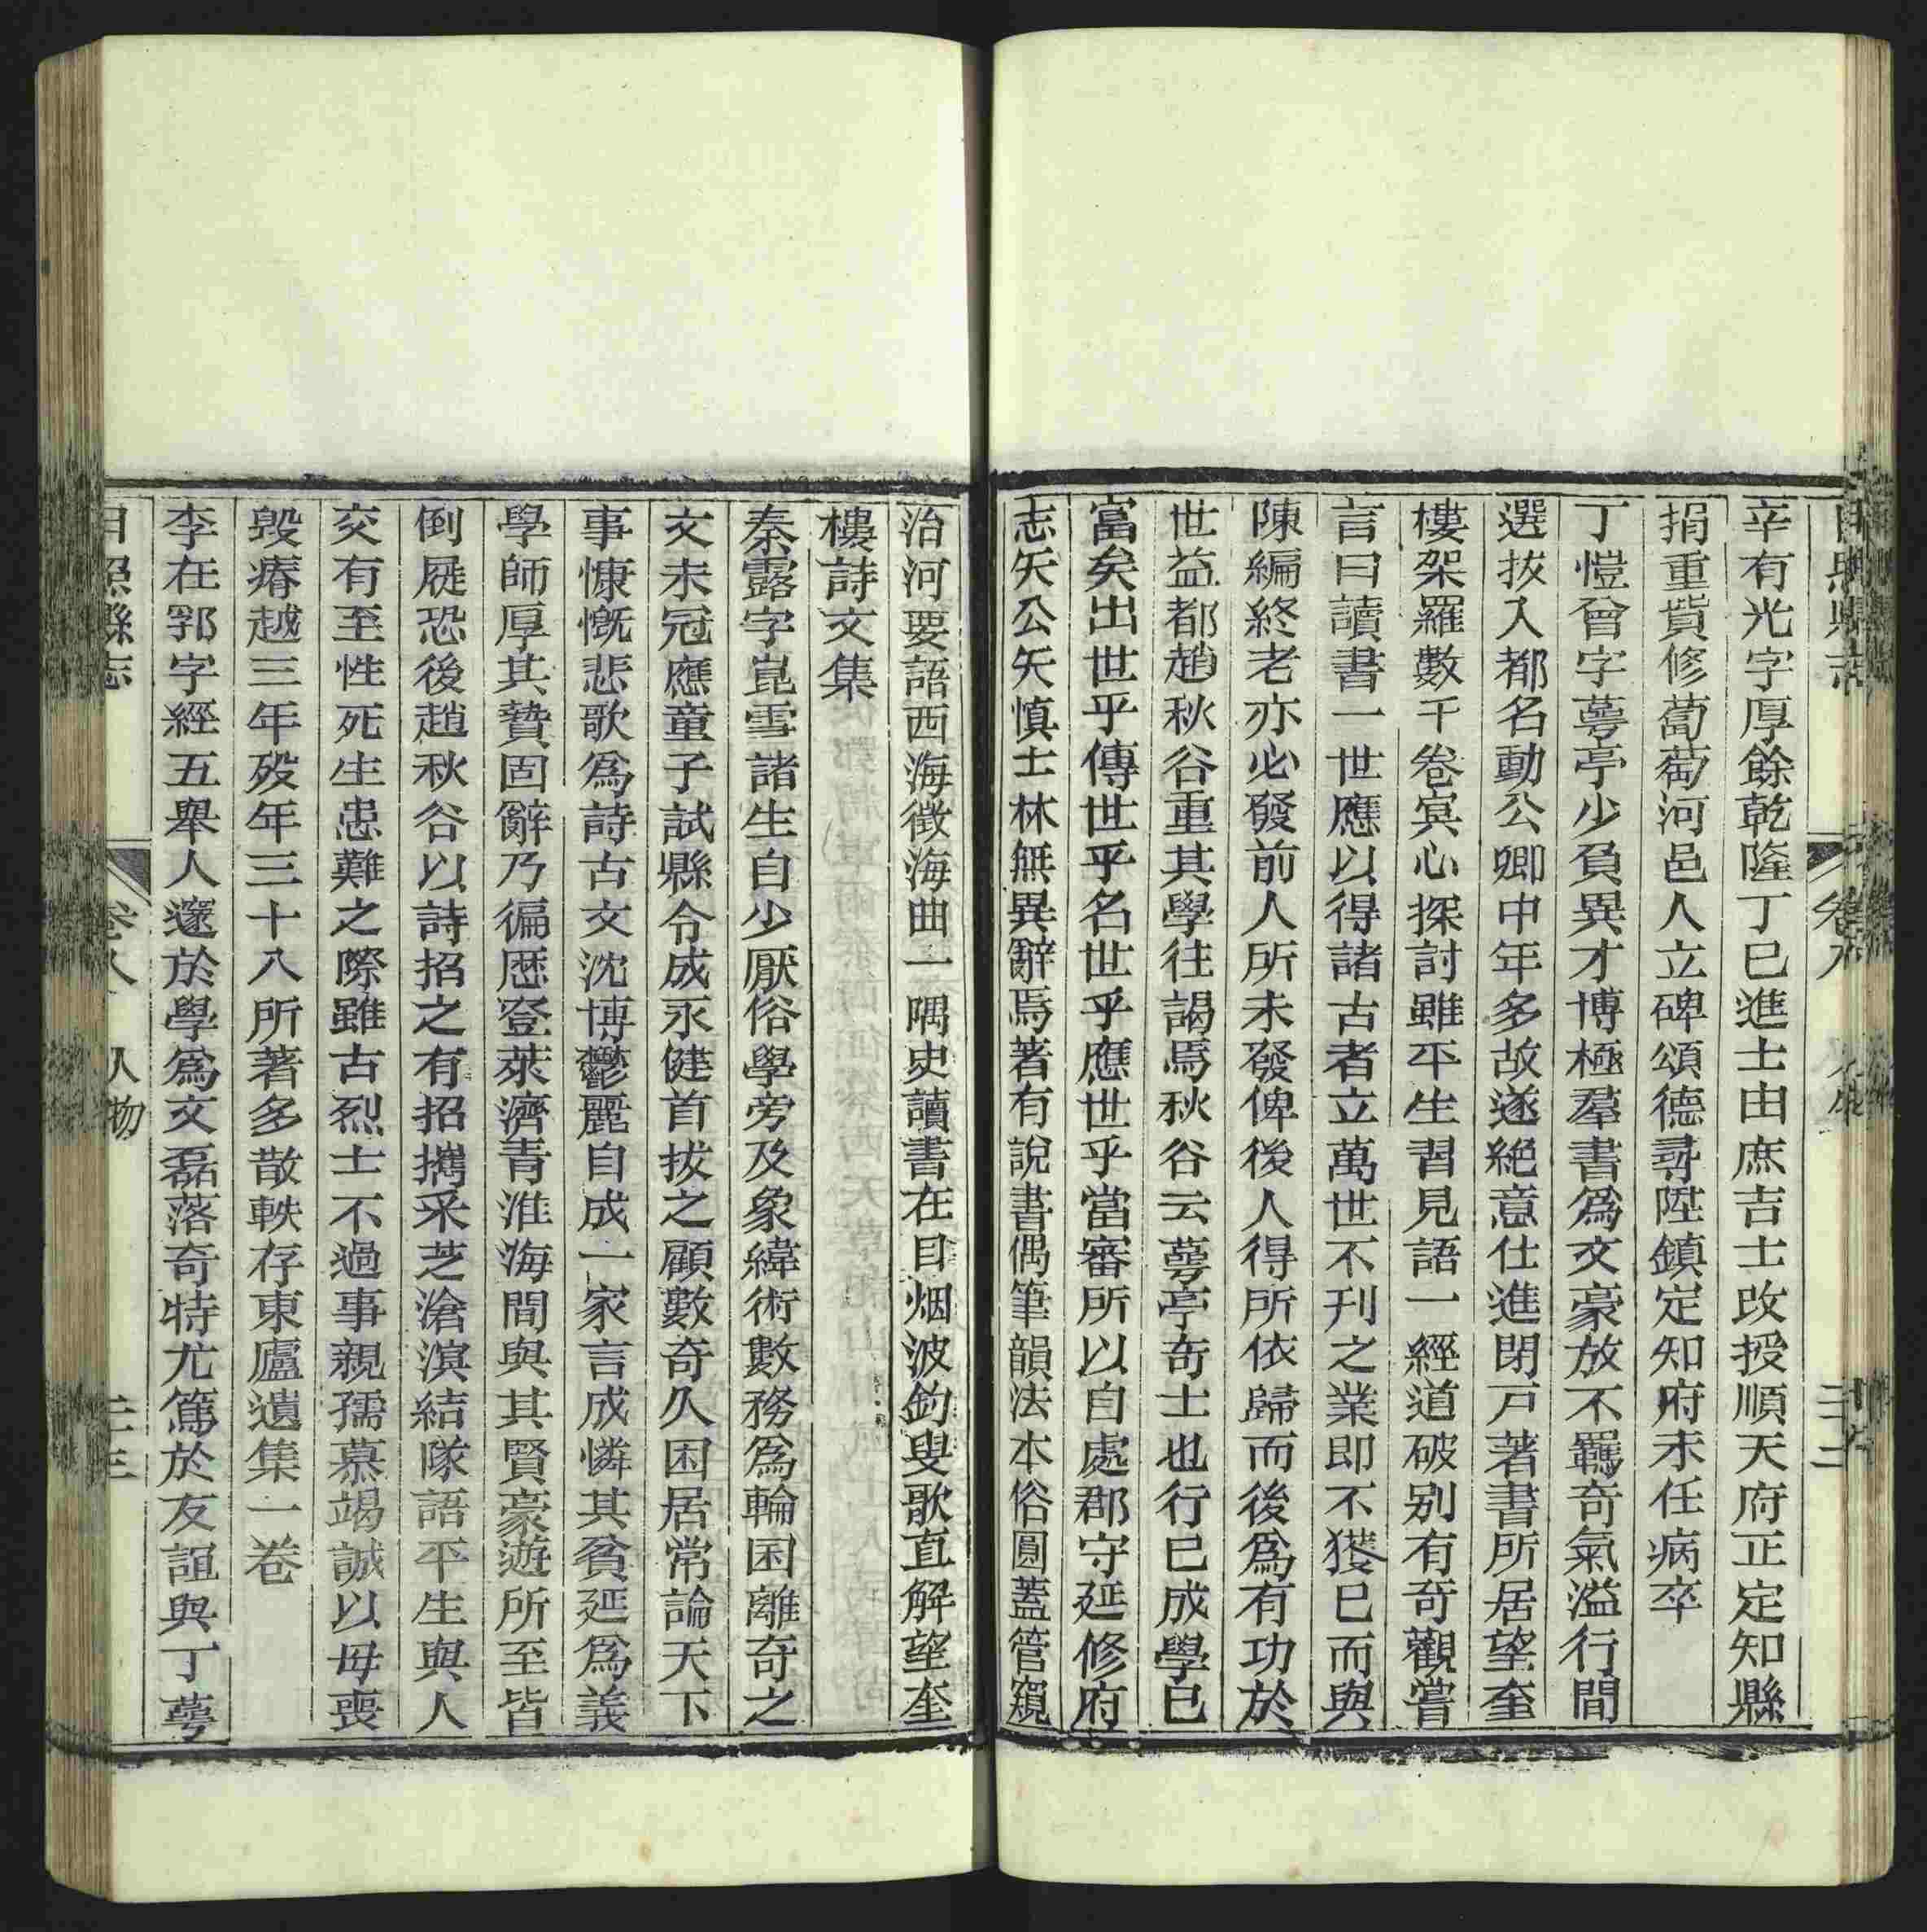 日照縣志 卷八 人物 二十二
辛有光字厚餘乾隆丁巳進士由庶吉士改授順天府正定知縣
捐重貲修蔔萄河邑人立碑頌德尋陞鎮定知府未任病卒
丁愷曾字萼亭少負異才博極羣書爲文豪放不羈奇氣溢行間
選拔入都名動公卿中年多故遂絕意仕進閉戸著書所居望奎
樓架羅數千卷㝠心探討雖平生習見語一經道破别有奇觀嘗
言曰讀書一世應以得諸古者立萬世不刊之業即不獲已而與
陳編終老亦必發前人所未發俾後人得所依歸而後爲有功於
世益都趙秋谷重其學往謁焉秋谷云萼亭奇士也行已成學已
富矣出世乎傳世乎名世乎應世乎當審所以自處郡守延修府
志矢公矢慎士林無異辭焉著有說書偶筆韻法本俗圓蓋管窺
治河要語西海徵海曲一隅史讀書在目烟波釣叟歌直解望奎
樓詩文集
秦露字崑雪諸生自少厭俗學旁及象緯術數務爲輪囷離奇之
文未冠應童子試縣令成永健首拔之顧數奇久困居常論天下
事慷慨悲歌爲詩古文沈博鬱麗自成一家言成憐其貧延爲義
學師厚其贄固辭乃徧歷登萊濟青淮海間與其賢豪遊所至皆
倒屣恐後趙秋谷以詩招之有招攜采芝滄溟結隊語平生與人
交有至性死生患難之際雖古烈士不過事親孺慕竭誠以毋喪
毀瘠越三年歿年三十八所著多散軼存東廬遺集一卷
李在郛字經五舉人邃於學爲文磊落奇特尤篤於友誼與丁萼
日照縣志 卷八 人物 二十三